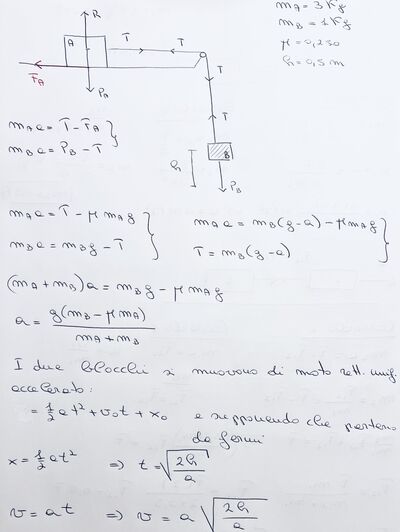 m_A = 3 Kg
m_B = 1 Kg
μ = 0,250
h = 0,5 m
R
A
T
T
F_A
P_A
T
T
B
h
P_B
m_A a = T - F_A
m_B a = P_B - T
m_A a = T - μ m_A g
m_A a = m_B (g-a) - μ m_A g
m_B a = m_B g - T
T = m_B (g-a)
(m_A + m_B) a = m_B g - μ m_A g
a = g(m_B - μ m_A) / m_A + m_B
I due blocchi si muovono di moto rett. unif.
accelerato:
= 1/2 a t² + v₀t + x₀ e supponendo che partano
da fermi
x = 1/2 a t² ⇒ t = √(2h/a)
v = a t ⇒ v = a √(2h/a)